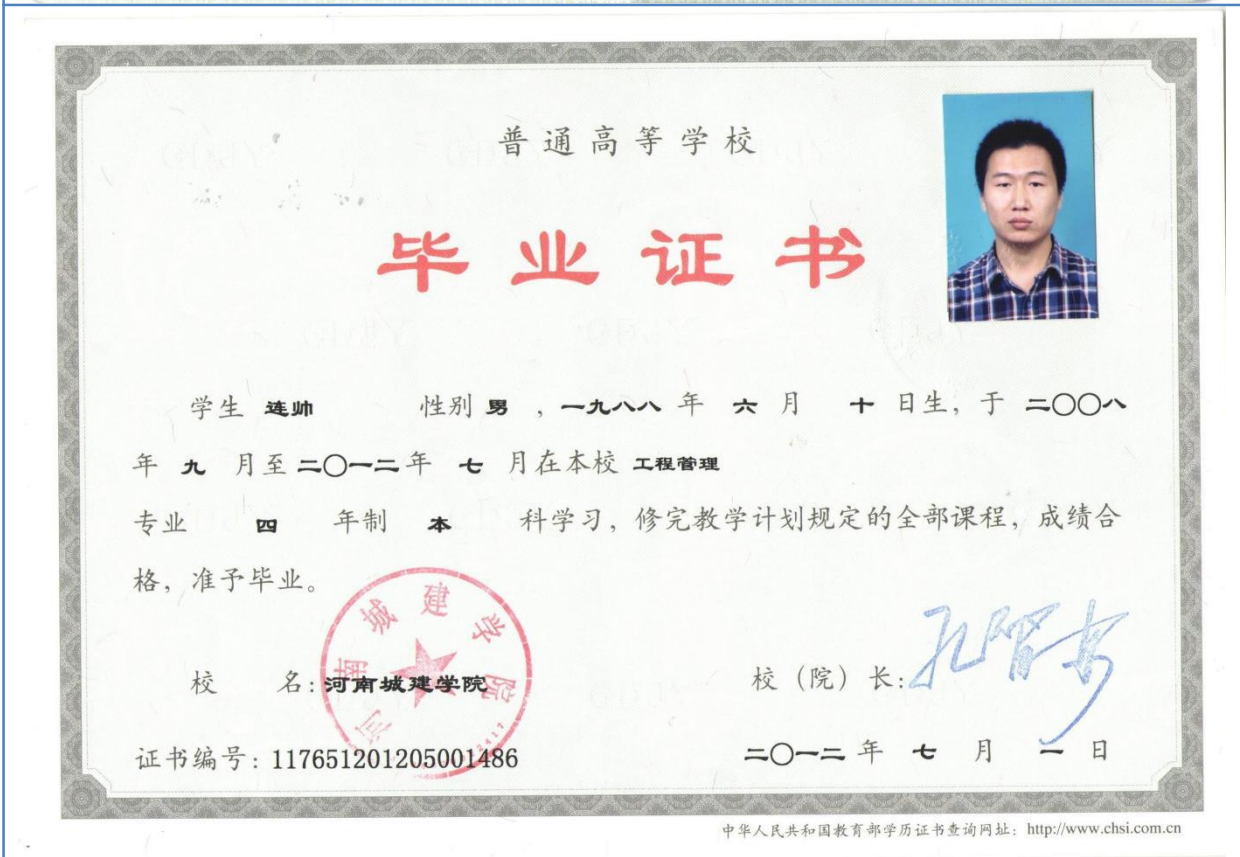 普通高等学校
毕业证书
学生 连帅 性别 男 ，一九八八 年 六 月 十 日生，于 二〇〇八
年 九 月至 二〇一二 年 七 月在本校 工程管理
专业 四 年制 本 科学习，修完教学计划规定的全部课程，成绩合
格，准予毕业。
河南城建学院
校 名：河南城建学院
校（院）长：
证书编号：117651201205001486
二〇一二 年 七 月 一 日
中华人民共和国教育部学历证书查询网址：http://www.chsi.com.cn